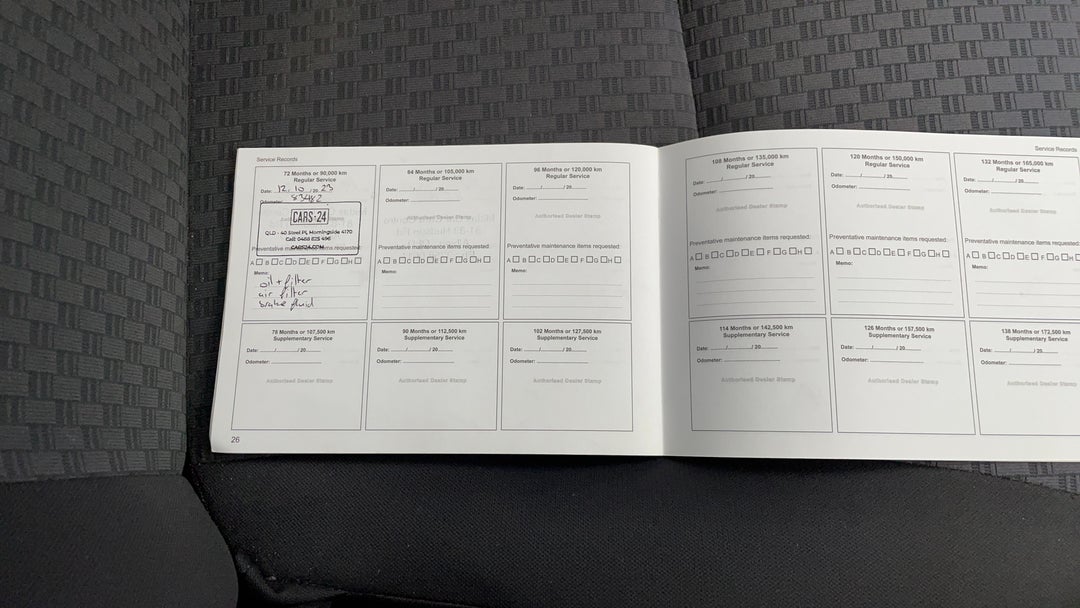 Service Records
72 Months or 90,000 km
Regular Service
Date: 12 / 10 / 20 23
Odometer: 83482
CARS24
QLD - 40 Steel PL Morningside 4170
Call: 0488 825 496
CARS24.COM
Preventative maintenance items requested:
A B C D E F G H
Memo:
oil + filter
air filter
brake fluid
84 Months or 105,000 km
Regular Service
Date: / / 20
Odometer:
Authorised Dealer Stamp
Preventative maintenance items requested:
A B C D E F G H
Memo:
96 Months or 120,000 km
Regular Service
Date: / / 20
Odometer:
Authorised Dealer Stamp
Preventative maintenance items requested:
A B C D E F G H
Memo:
78 Months or 107,500 km
Supplementary Service
Date: / / 20
Odometer:
Authorised Dealer Stamp
90 Months or 112,500 km
Supplementary Service
Date: / / 20
Odometer:
Authorised Dealer Stamp
102 Months or 127,500 km
Supplementary Service
Date: / / 20
Odometer:
Authorised Dealer Stamp
26
Service Records
108 Months or 135,000 km
Regular Service
Date: / / 20
Odometer:
Authorised Dealer Stamp
Preventative maintenance items requested:
A B C D E F G H
Memo:
120 Months or 150,000 km
Regular Service
Date: / / 20
Odometer:
Authorised Dealer Stamp
Preventative maintenance items requested:
A B C D E F G H
Memo:
132 Months or 165,000 km
Regular Service
Date: / / 20
Odometer:
Authorised Dealer Stamp
Preventative maintenance items requested:
A B C D E F G H
Memo:
114 Months or 142,500 km
Supplementary Service
Date: / / 20
Odometer:
Authorised Dealer Stamp
126 Months or 157,500 km
Supplementary Service
Date: / / 20
Odometer:
Authorised Dealer Stamp
138 Months or 172,500 km
Supplementary Service
Date: / / 20
Odometer:
Authorised Dealer Stamp